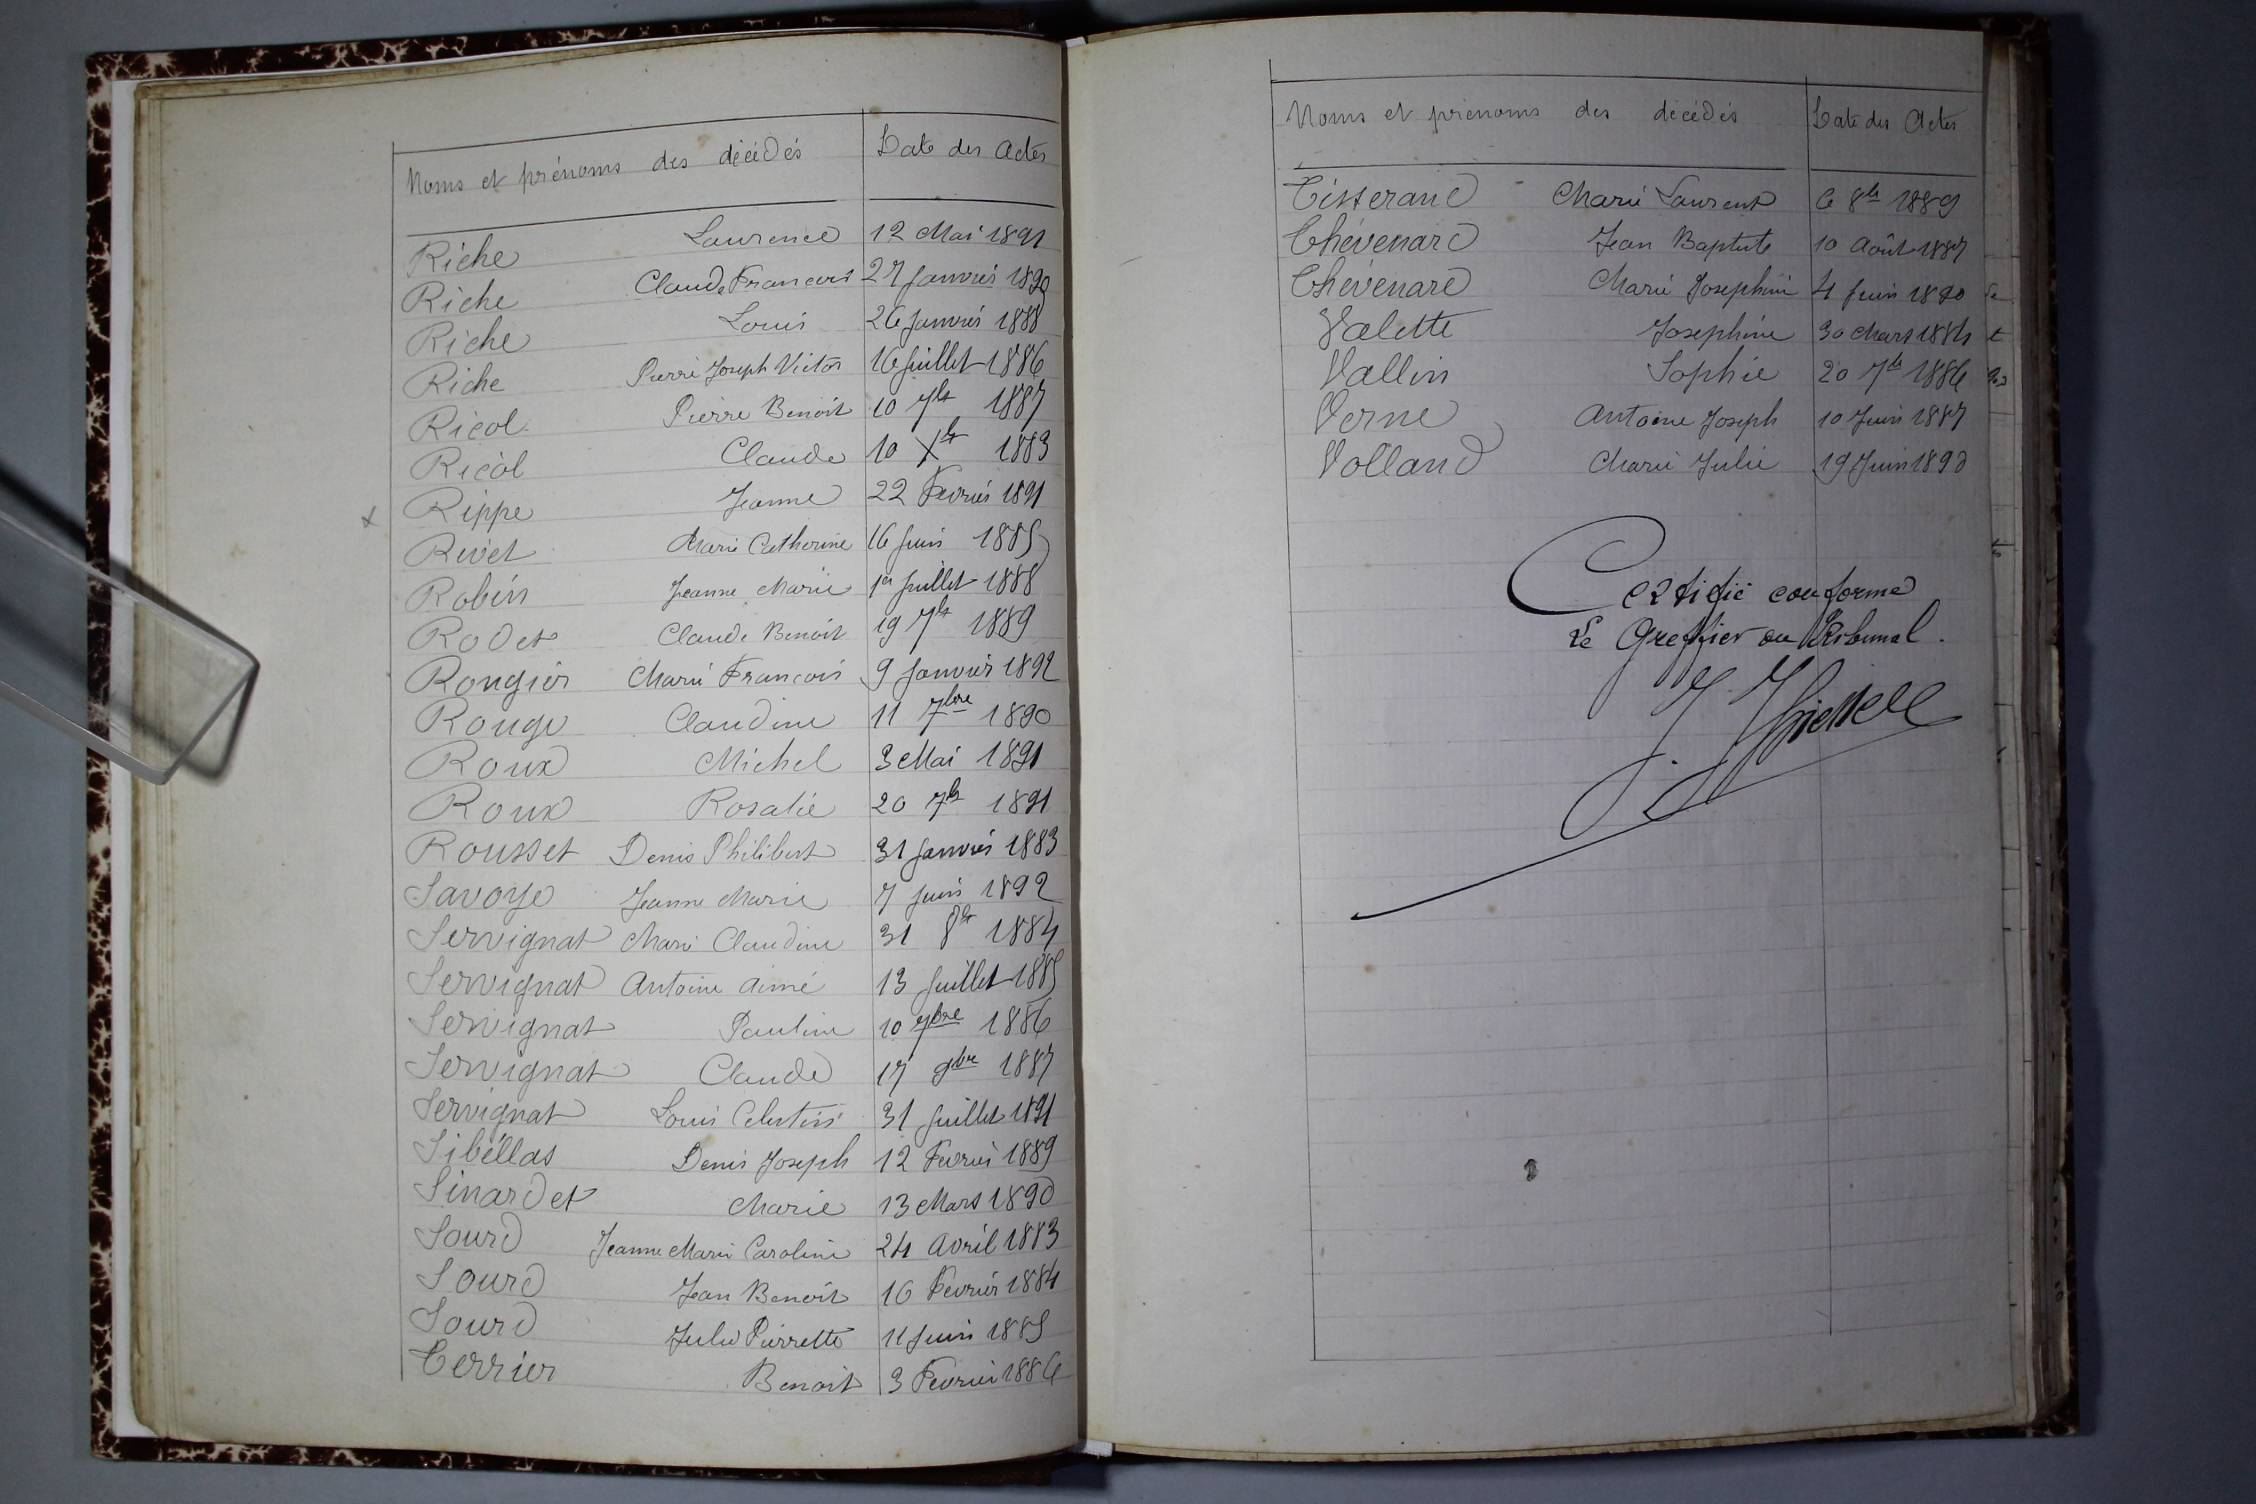 Noms et prénoms des décédés Date des Actes
Riche Laurence 12 Mai 1891
Riche Claude Francois 27 Janvier 1890
Riche Louis 26 Janvier 1888
Riche Pierre Joseph Victor 16 Juillet 1886
Ricol Pierre Benoit 10 7bre 1887
Ricol Claude 10 Xbre 1883
Rippe Jeanne 22 Fevrier 1891
x
Rivet Marie Catherine 16 Juin 1885
Robin Jeanne Marie 1er Juillet 1888
Rodet Claude Benoit 19 7bre 1889
Rongier Marie Francois 9 Janvier 1892
Ronge Claudine 11 7bre 1890
Roux Michel 3 Mai 1891
Roux Rosalie 20 7bre 1891
Rousset Denis Philibert 31 Janvier 1883
Savoye Jeanne Marie 7 Juin 1892
Servignat Marie Claudine 31 8bre 1884
Servignat Antoine Aimé 13 Juillet 1885
Servignat Pauline 10 7bre 1886
Servignat Claude 17 9bre 1887
Servignat Louis Celestin 31 Juillet 1891
Sibéllas Denis Joseph 12 Fevrier 1889
Sinardet Marie 13 Mars 1890
Sourd Jeanne Marie Caroline 24 Avril 1883
Sourd Jean Benoit 16 Fevrier 1884
Sourd Julie Pierrette 11 Juin 1885
Terrier Benoit 3 Fevrier 1886
Noms et prénoms des décédés Date des Actes
Tisserand Marie Laurent 6 8bre 1889
Thévenard Jean Baptiste 10 Août 1887
Thévenard Marie Josephine 4 Juin 1890
Valette Josephine 30 Mars 1884
Vallin Sophie 20 7bre 1886
Verne Antoine Joseph 10 Juin 1887
Volland Marie Julie 19 Juin 1890
Certifié conforme
Le Greffier du Tribunal.